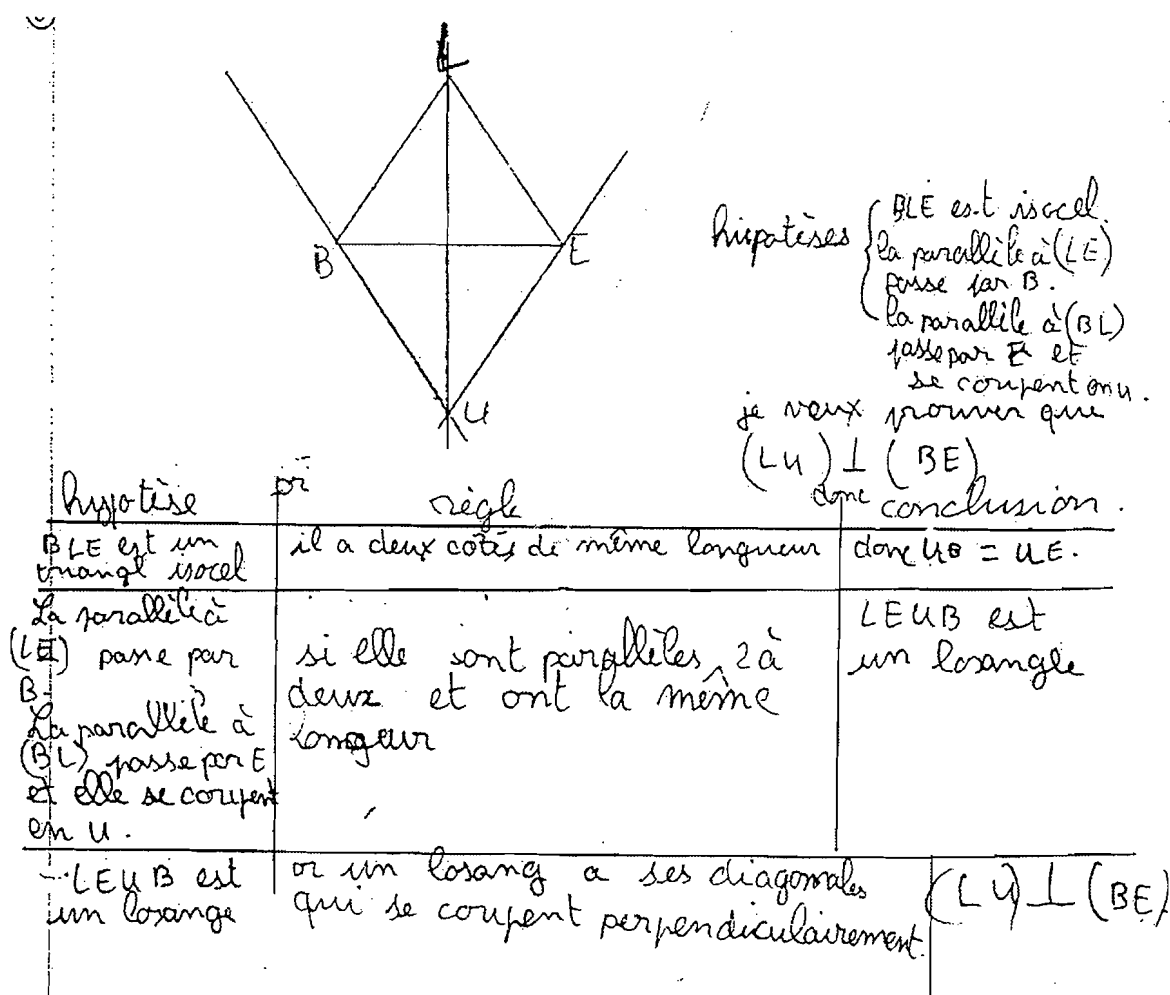 L
B
E
U
hipatèses
BLE est isocel.
la parallèle à (LE)
passe par B.
la parallile à (BL)
passe par E et
se coupent en u.
je veux prouver que
(LU) ⊥ (BE)
hypotèse
règle
donc conclusion.
BLE est un
triangl isocel
il a deux cotés de même longueur
donc UB = UE.
La parallèle à
(LE) passe par
B.
La parallèle à
(BL) passe par E
et elle se coupent
en U.
si elle sont parallèles 2 à
deux et ont la même
longeur
LEUB est
un losangle
- LEUB est
un losange
or un losang a ses diagonales
qui se coupent perpendiculairement.
(LU) ⊥ (BE)